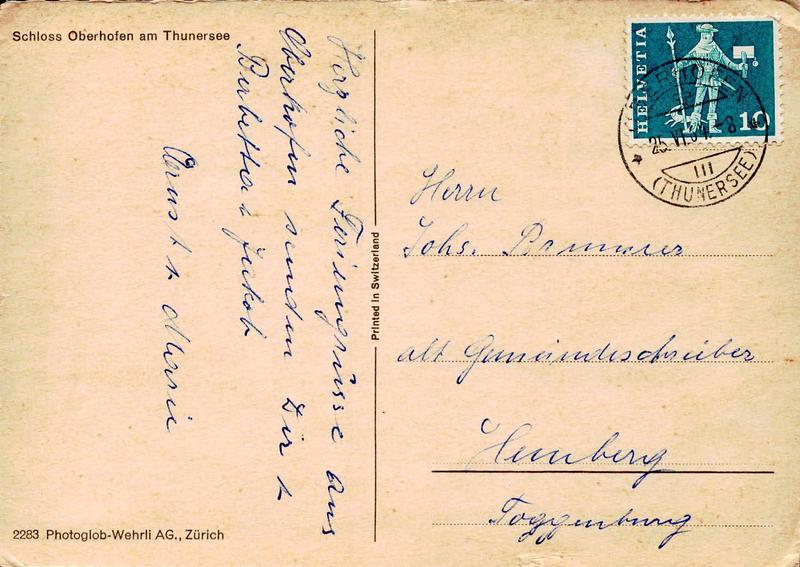 Schloss Oberhofen am Thunersee
Herzliche Feriengrüsse aus
Oberhofen senden Dir +
Babetta + Jakob
Ernst + Marie
Printed in Switzerland
HELVETIA
10
25.VI. -8
III
(THUNERSEE)
Herrn
Johs. Brunner
alt Gemeindeschreiber
Hemberg
Toggenburg
2283 Photoglob-Wehrli AG., Zürich